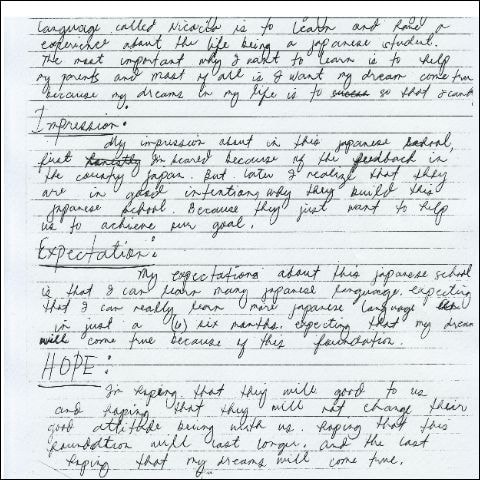 language called Nicoito is to learn and have a
experience about the life being a japanese student.
The most important why I want to learn is to help
my parents and most of all is I want my dream come true
because my dreams in my life is to so that I cant
Impression:
My impression about in this japanese school,
first I'm scared because of the feedback in
the country japan. But later I realize that they
are in good intentions why they build this
japanese school. Because they just want to help
us to achieve our goal.
Expectation:
My expectations about this japanese school
is that I can learn many japanese language. expecting
that I can really learn more japanese language
in just a (6) six months. expecting that my dream
will come true because of this foundation.
HOPE:
I'm hoping that they will good to us
and hoping that they will not change their
good attitude being with us. hoping that this
foundation will last longer. and the last
hoping that my dreams will come true.